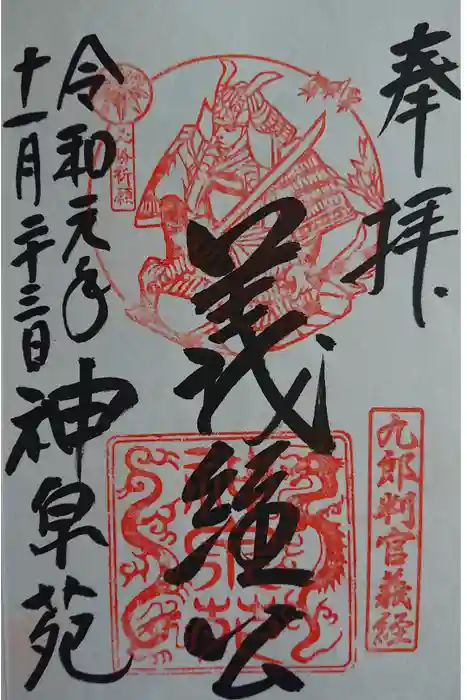 奉拝
九郎判官義経
義経公
令和元年
十一月二十三日
神泉苑